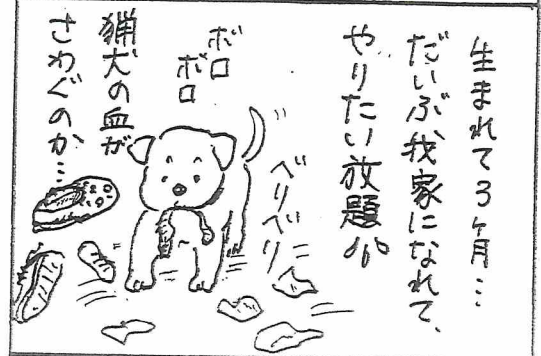 生まれて3ヶ月…
だいぶ我家になれて、
やりたい放題
ベリベリ
ボロ
ボロ
猟犬の血が
さわぐのか…